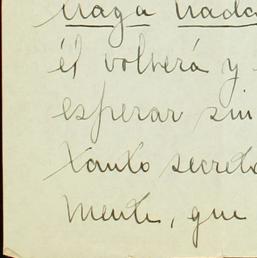 haga nada
él volverá y
esperar sin
tanto secreto
mente, que